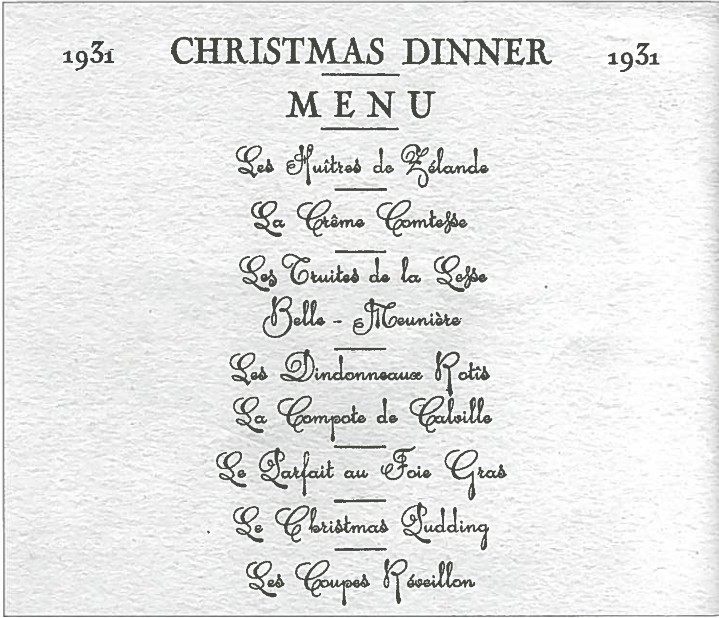 1931 CHRISTMAS DINNER 1931
MENU
Les Huîtres de Zélande
La Crême Comtesse
Les Truites de la Lesse
Belle - Meunière
Les Dindonneaux Rotîs
La Compote de Calville
Le Parfait au Foie Gras
Le Christmas Pudding
Les Coupes Réveillon